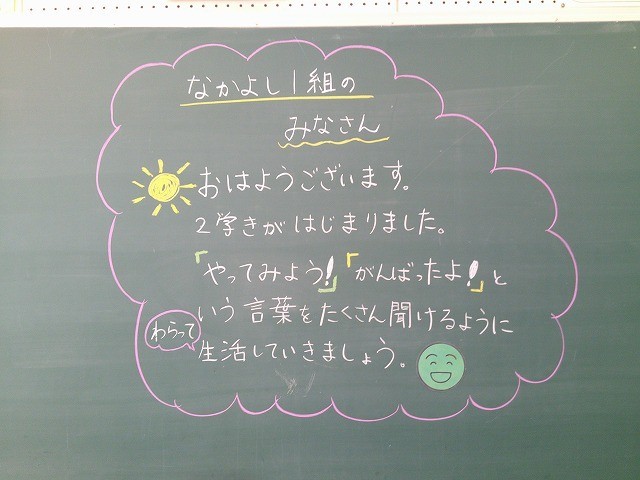 なかよし1組の
みなさん
おはようございます。
2学きがはじまりました。
「やってみよう!」「がんばったよ!」と
いう言葉をたくさん聞けるように
わらって
生活していきましょう。